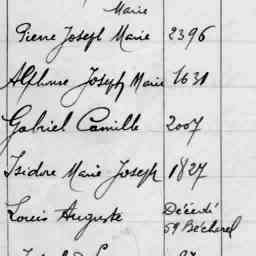 Marie
Pierre Joseph Marie 2396
Alphonse Joseph Marie 1631
Gabriel Camille 2007
Isidore Marie Joseph 1827
Louis Auguste Décédé
59 Bécherel